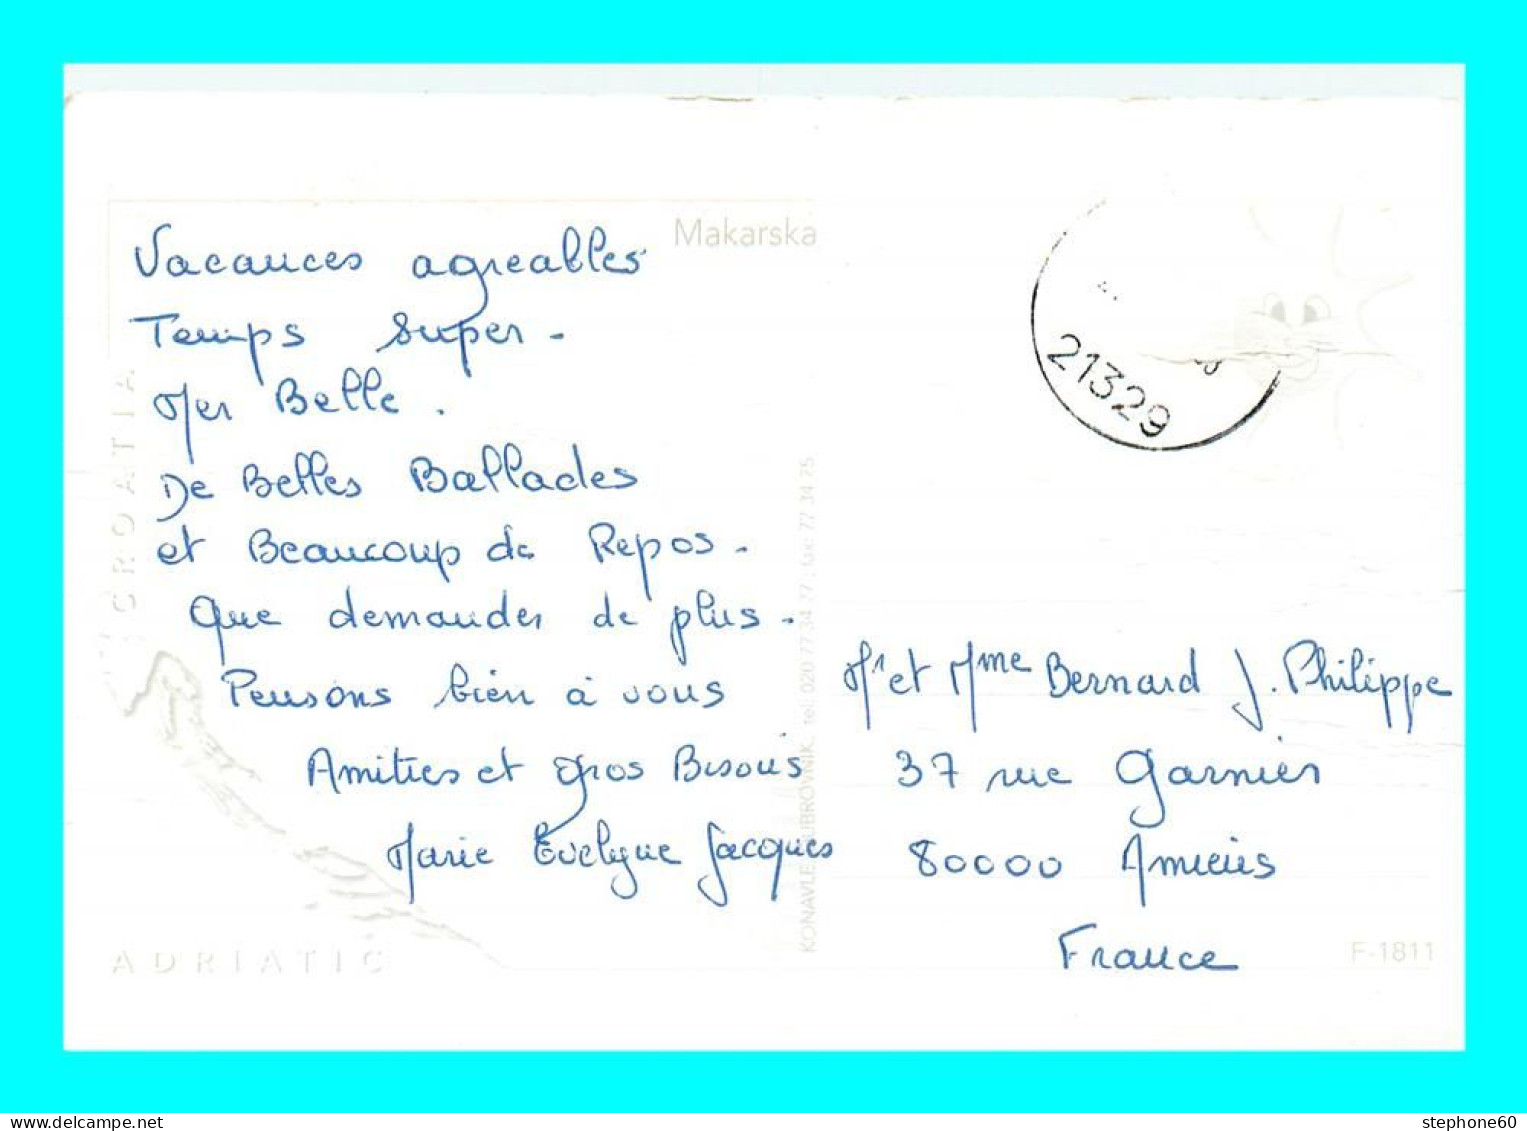 Makarska
Vacances agreables
Temps super -
Mer Belle .
De Belles Ballades
et Beaucoup de Repos -
Que demander de plus -
Pensons bien à vous
Amitiés et gros Bisous
Marie Evelyne Jacques
Mr et Mme Bernard J. Philippe
37 rue Garnier
80000 Amiens
France
21329
CROATIA
ADRIATIC
KONAVLE DUBROVNIK, tel: 020 77 34 77; fax: 77 34 75
F-1811
stephone60